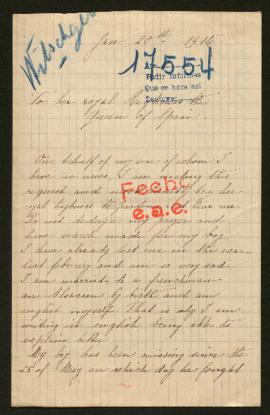 Witschger
Jan 20th 1916
17554
Pedir Informes
Que se hara asi
To her royal Highness the
Queen of Spain
On behalf of my son of whom I
have no news, I am writing this
request and
royal highness
to not my prayer and
have search made for my boy
I have already lost one in the war
last february and am so very sad
I am married to a frenchman
an Alsacien by birth and am
english myself. That is why I am
writing in english being able to
explain better
My boy has been missing since the
25 of May on which day he fought
Fecha
e.a.e.